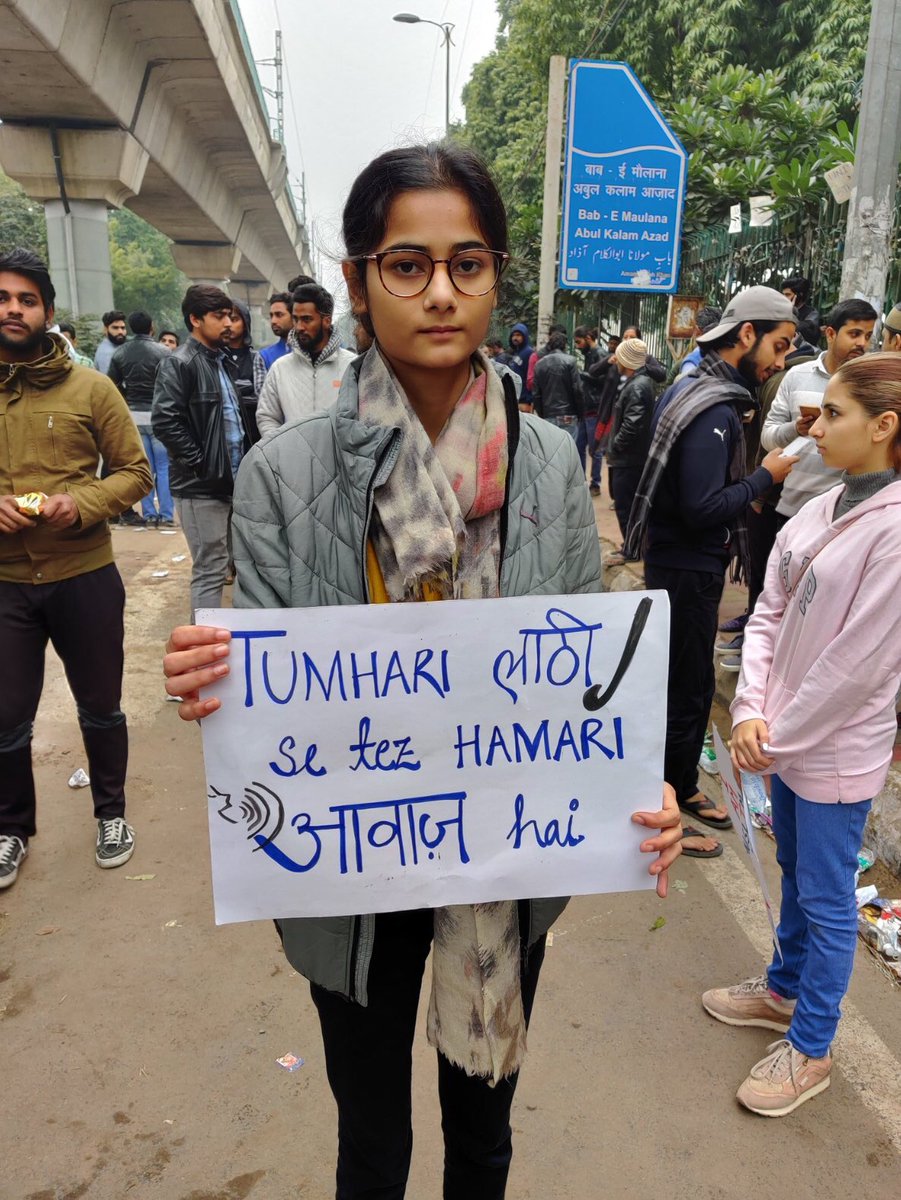 बाब - ई मौलाना
अबुल कलाम आज़ाद
Bab - E Maulana
Abul Kalam Azad
باب مولانا ابوالکلام آزاد
TUMHARI लाठी
se tez HAMARI
आवाज़ hai